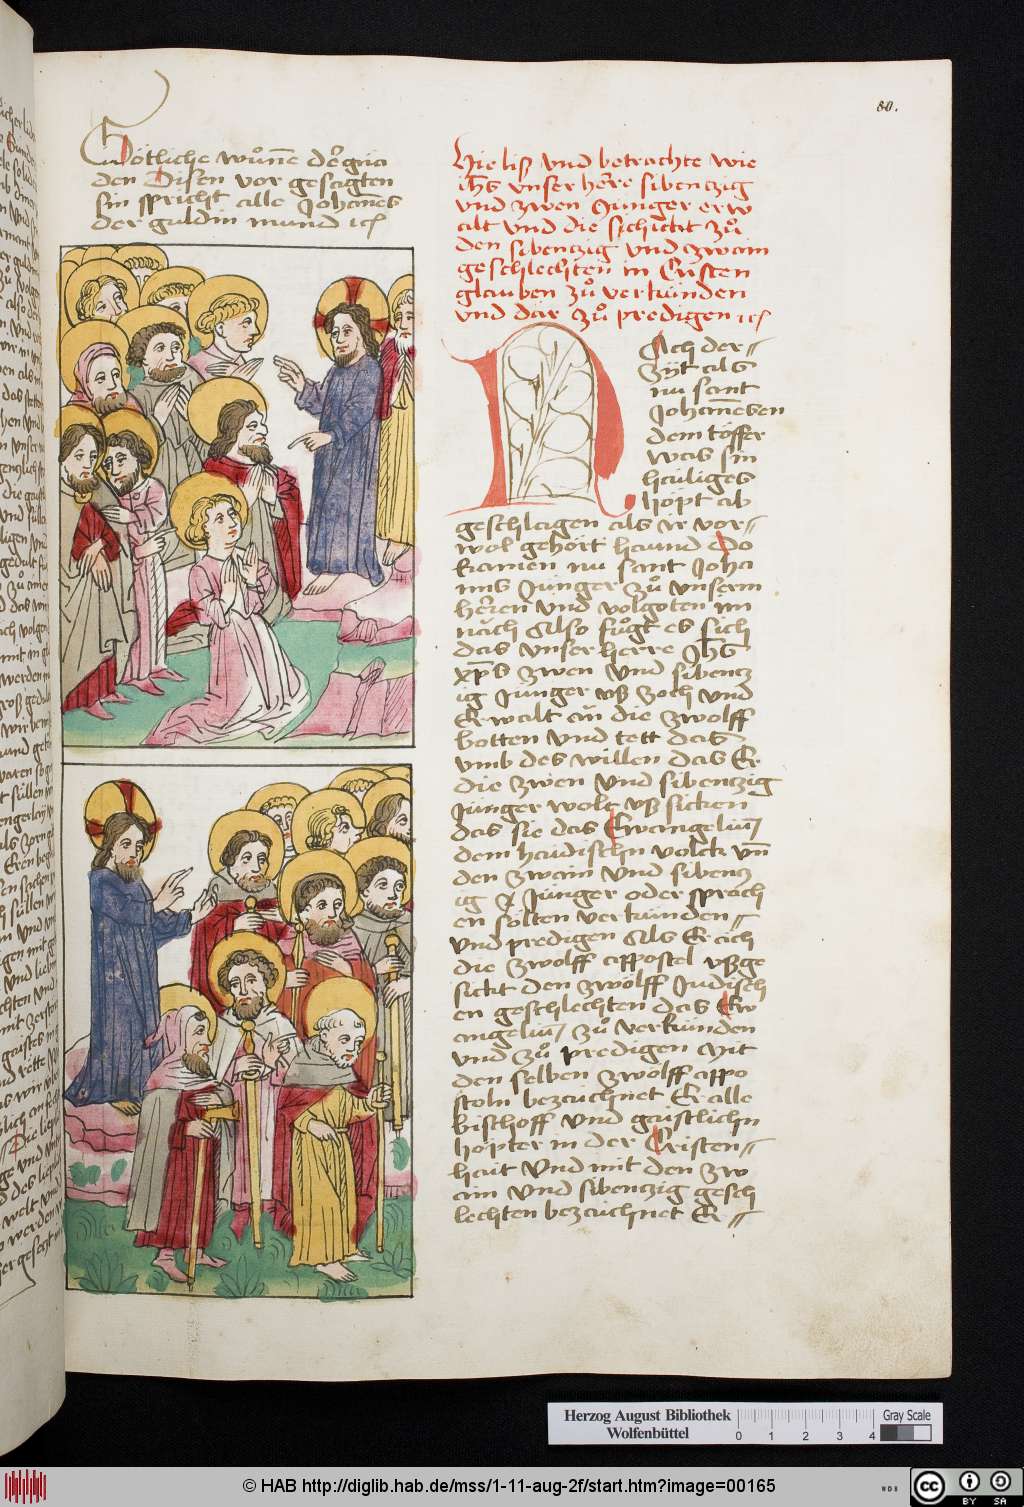 80.
Götliche wůne der gna
den Disen vor gesagten
sin spricht alle Johanes
der guldin mund
Hie liß vnd betrachte wie
ihs vnser herre sibenczig
vnd zwen Junger erw
alt vnd die schickt zů
den sibenczig vnd zwain
geschlechten in Cristen
glauben zů verkünden
vnd dar zů predigen
NAch der
Zijt als
nu sant
Johanesen
dem töffer
was sin
hailiges
hopt ab
geschlagen als ir vor
wol gehört haund Do
kamen nu sant Joha
nns Junger zů vnserm
herren vnd volgoten im
nach Also fůgt es sich
das vnser herre Jhs
xps zwen vnd sibencz
ig Junger vß zoch vnd
Erwalt an die zwolff
botten vnd tett das
vmb des willen das Er
die zwen vnd sibenczig
Jünger wolt vß sicken
das sie das Ewangelium
dem haidischn volck vn
den zwain vnd sibencz
ig Jünger oder sprach
en solten verkünden
vnd predigen Als Er ach
die zwolff appostel vßge
sickt den zwolff Judisch
en geschlechten das Ew
angelium zů verkünden
vnd zů predigen Mit
den selben zwolff appo
stoln bezaichnet Er alle
bischoff vnd gaistlichn
höpter in der Cristen
hait Vnd mit den zw
ain vnd sibenczig gesch
lechten bezaichnet Er
Herzog August Bibliothek
Wolfenbüttel
0 1 2 3 4
Gray Scale
© HAB http://diglib.hab.de/mss/1-11-aug-2f/start.htm?image=00165
WDB
cc BY SA